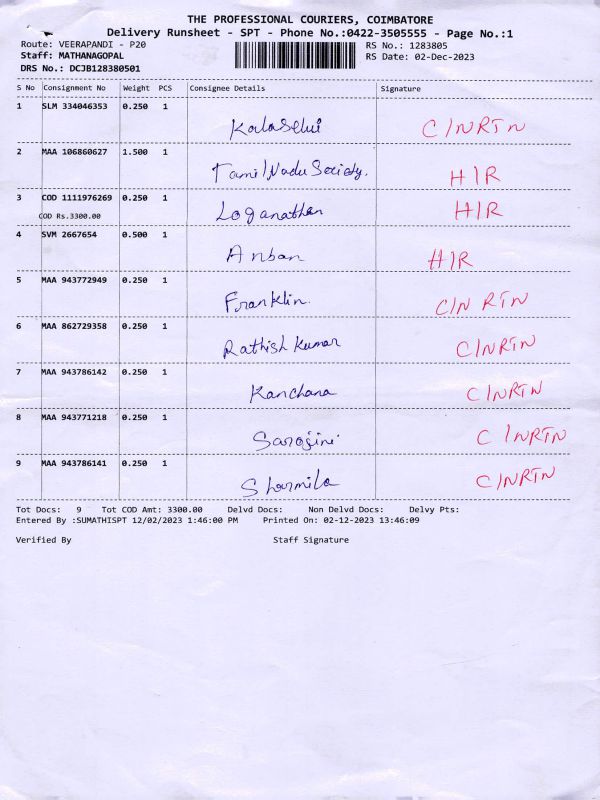 THE PROFESSIONAL COURIERS, COIMBATORE
Delivery Runsheet - SPT - Phone No.:0422-3505555 - Page No.:1
Route: VEERAPANDI - P20 RS No.: 1283805
Staff: MATHANAGOPAL RS Date: 02-Dec-2023
DRS No.: DCJB128380501
S No Consignment No Weight PCS Consignee Details Signature
1 SLM 334046353 0.250 1
Kalaselvi C/NRTN
2 MAA 106860627 1.500 1
Tamil Nadu Society. H/R
3 COD 1111976269 0.250 1
Loganathan H/R
COD Rs.3300.00
4 SVM 2667654 0.500 1
Anban H/R
5 MAA 943772949 0.250 1
Franklin. C/N RTN
6 MAA 862729358 0.250 1
Rathish Kumar C/NRTN
7 MAA 943786142 0.250 1
Kanchana C/NRTN
8 MAA 943771218 0.250 1
Sarojini C/NRTN
9 MAA 943786141 0.250 1
Sharmila C/NRTN
Tot Docs: 9 Tot COD Amt: 3300.00 Delvd Docs: Non Delvd Docs: Delvy Pts:
Entered By :SUMATHISPT 12/02/2023 1:46:00 PM Printed On: 02-12-2023 13:46:09
Verified By Staff Signature